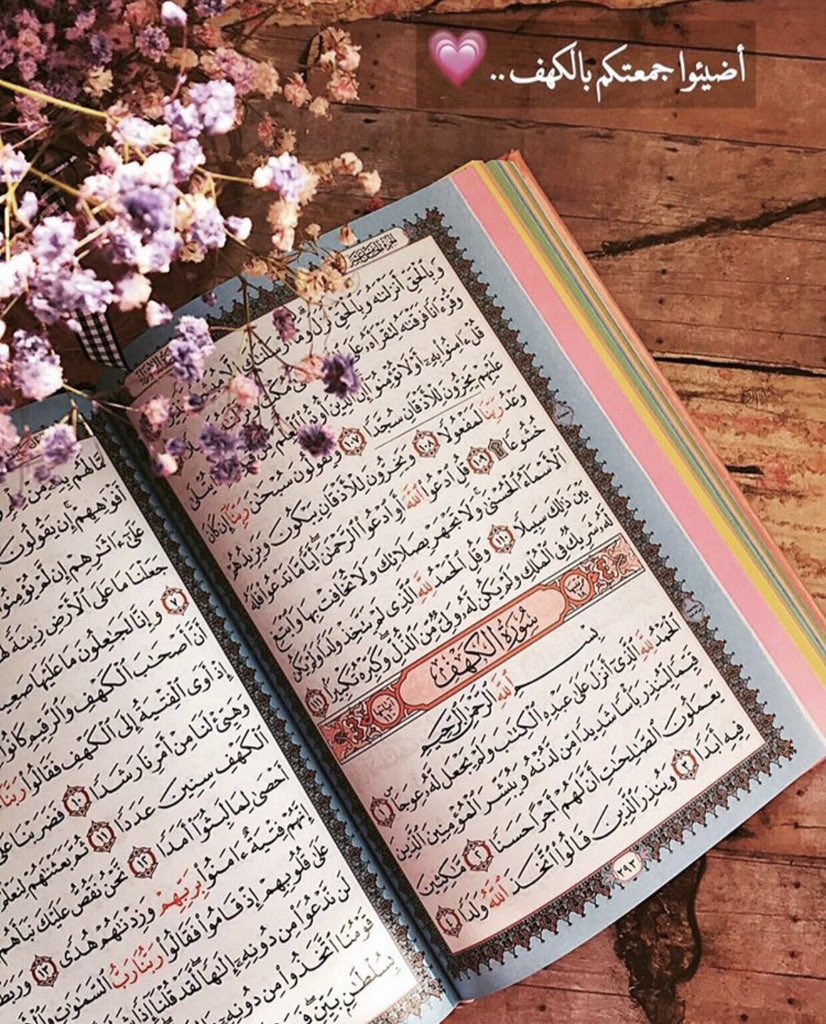 أضيئوا جمعتكم بالكهف ..
وَبِالْحَقِّ أَنزَلْنَٰهُ وَبِالْحَقِّ نَزَلَ وَمَا
وَقُرْءَانًا فَرَقْنَٰهُ لِتَقْرَأَهُۥ عَلَى
قُلْ ءَامِنُوا۟ بِهِۦٓ أَوْ لَا تُؤْمِنُوٓا۟ إِنَّ الَّذِينَ أُوتُوا۟
عَلَيْهِمْ يَخِرُّونَ لِلْأَذْقَانِ سُجَّدًا ١٠٧ وَيَقُولُونَ سُبْحَٰنَ رَبِّنَآ إِن كَانَ
وَعْدُ رَبِّنَا لَمَفْعُولًا ١٠٨ وَيَخِرُّونَ لِلْأَذْقَانِ يَبْكُونَ وَيَزِيدُهُمْ
خُشُوعًا ۩ ١٠٩ قُلِ ادْعُوا۟ اللَّهَ أَوِ ادْعُوا۟ الرَّحْمَٰنَ أَيًّا مَّا تَدْعُوا۟ فَلَهُ
الْأَسْمَآءُ الْحُسْنَىٰ وَلَا تَجْهَرْ بِصَلَاتِكَ وَلَا تُخَافِتْ بِهَا وَابْتَغِ
بَيْنَ ذَٰلِكَ سَبِيلًا ١١٠ وَقُلِ الْحَمْدُ لِلَّهِ الَّذِى لَمْ يَتَّخِذْ وَلَدًا وَلَمْ يَكُن
لَّهُۥ شَرِيكٌ فِى الْمُلْكِ وَلَمْ يَكُن لَّهُۥ وَلِىٌّ مِّنَ الذُّلِّ وَكَبِّرْهُ تَكْبِيرًا ١١١
سُورَةُ الكَهْفِ
بِسْمِ اللَّهِ الرَّحْمَٰنِ الرَّحِيمِ
الْحَمْدُ لِلَّهِ الَّذِىٓ أَنزَلَ عَلَىٰ عَبْدِهِ الْكِتَٰبَ وَلَمْ يَجْعَل لَّهُۥ عِوَجَا ١
قَيِّمًا لِّيُنذِرَ بَأْسًا شَدِيدًا مِّن لَّدُنْهُ وَيُبَشِّرَ الْمُؤْمِنِينَ الَّذِينَ
يَعْمَلُونَ الصَّٰلِحَٰتِ أَنَّ لَهُمْ أَجْرًا حَسَنًا ٢ مَّٰكِثِينَ
فِيهِ أَبَدًا ٣ وَيُنذِرَ الَّذِينَ قَالُوا۟ اتَّخَذَ اللَّهُ وَلَدًا ٤
٢٩٣
مَّا لَهُم بِهِۦ مِنْ
أَفْوَٰهِهِمْ إِن يَقُولُونَ
عَلَىٰٓ ءَاثَٰرِهِمْ إِن لَّمْ يُؤْمِنُوا۟
جَعَلْنَا مَا عَلَى الْأَرْضِ زِينَةً
٧ وَإِنَّا لَجَٰعِلُونَ مَا عَلَيْهَا
أَنَّ أَصْحَٰبَ الْكَهْفِ وَالرَّقِيمِ كَانُوا۟
إِذْ أَوَى الْفِتْيَةُ إِلَى الْكَهْفِ فَقَالُوا۟ رَبَّنَآ
وَهَيِّئْ لَنَا مِنْ أَمْرِنَا رَشَدًا ١٠ فَضَرَبْنَا
الْكَهْفِ سِنِينَ عَدَدًا ١١ ثُمَّ بَعَثْنَٰهُمْ
أَحْصَىٰ لِمَا لَبِثُوٓا۟ أَمَدًا ١٢ نَّحْنُ نَقُصُّ عَلَيْكَ نَبَأَهُم
إِنَّهُمْ فِتْيَةٌ ءَامَنُوا۟ بِرَبِّهِمْ وَزِدْنَٰهُمْ هُدًى ١٣
عَلَىٰ قُلُوبِهِمْ إِذْ قَامُوا۟ فَقَالُوا۟ رَبُّنَا رَبُّ السَّمَٰوَٰتِ
لَن نَّدْعُوَا۟ مِن دُونِهِۦٓ إِلَٰهًا لَّقَدْ قُلْنَآ إِذًا
قَوْمُنَا اتَّخَذُوا۟ مِن دُونِهِۦٓ
بِسُلْطَٰنٍۭ بَيِّنٍ